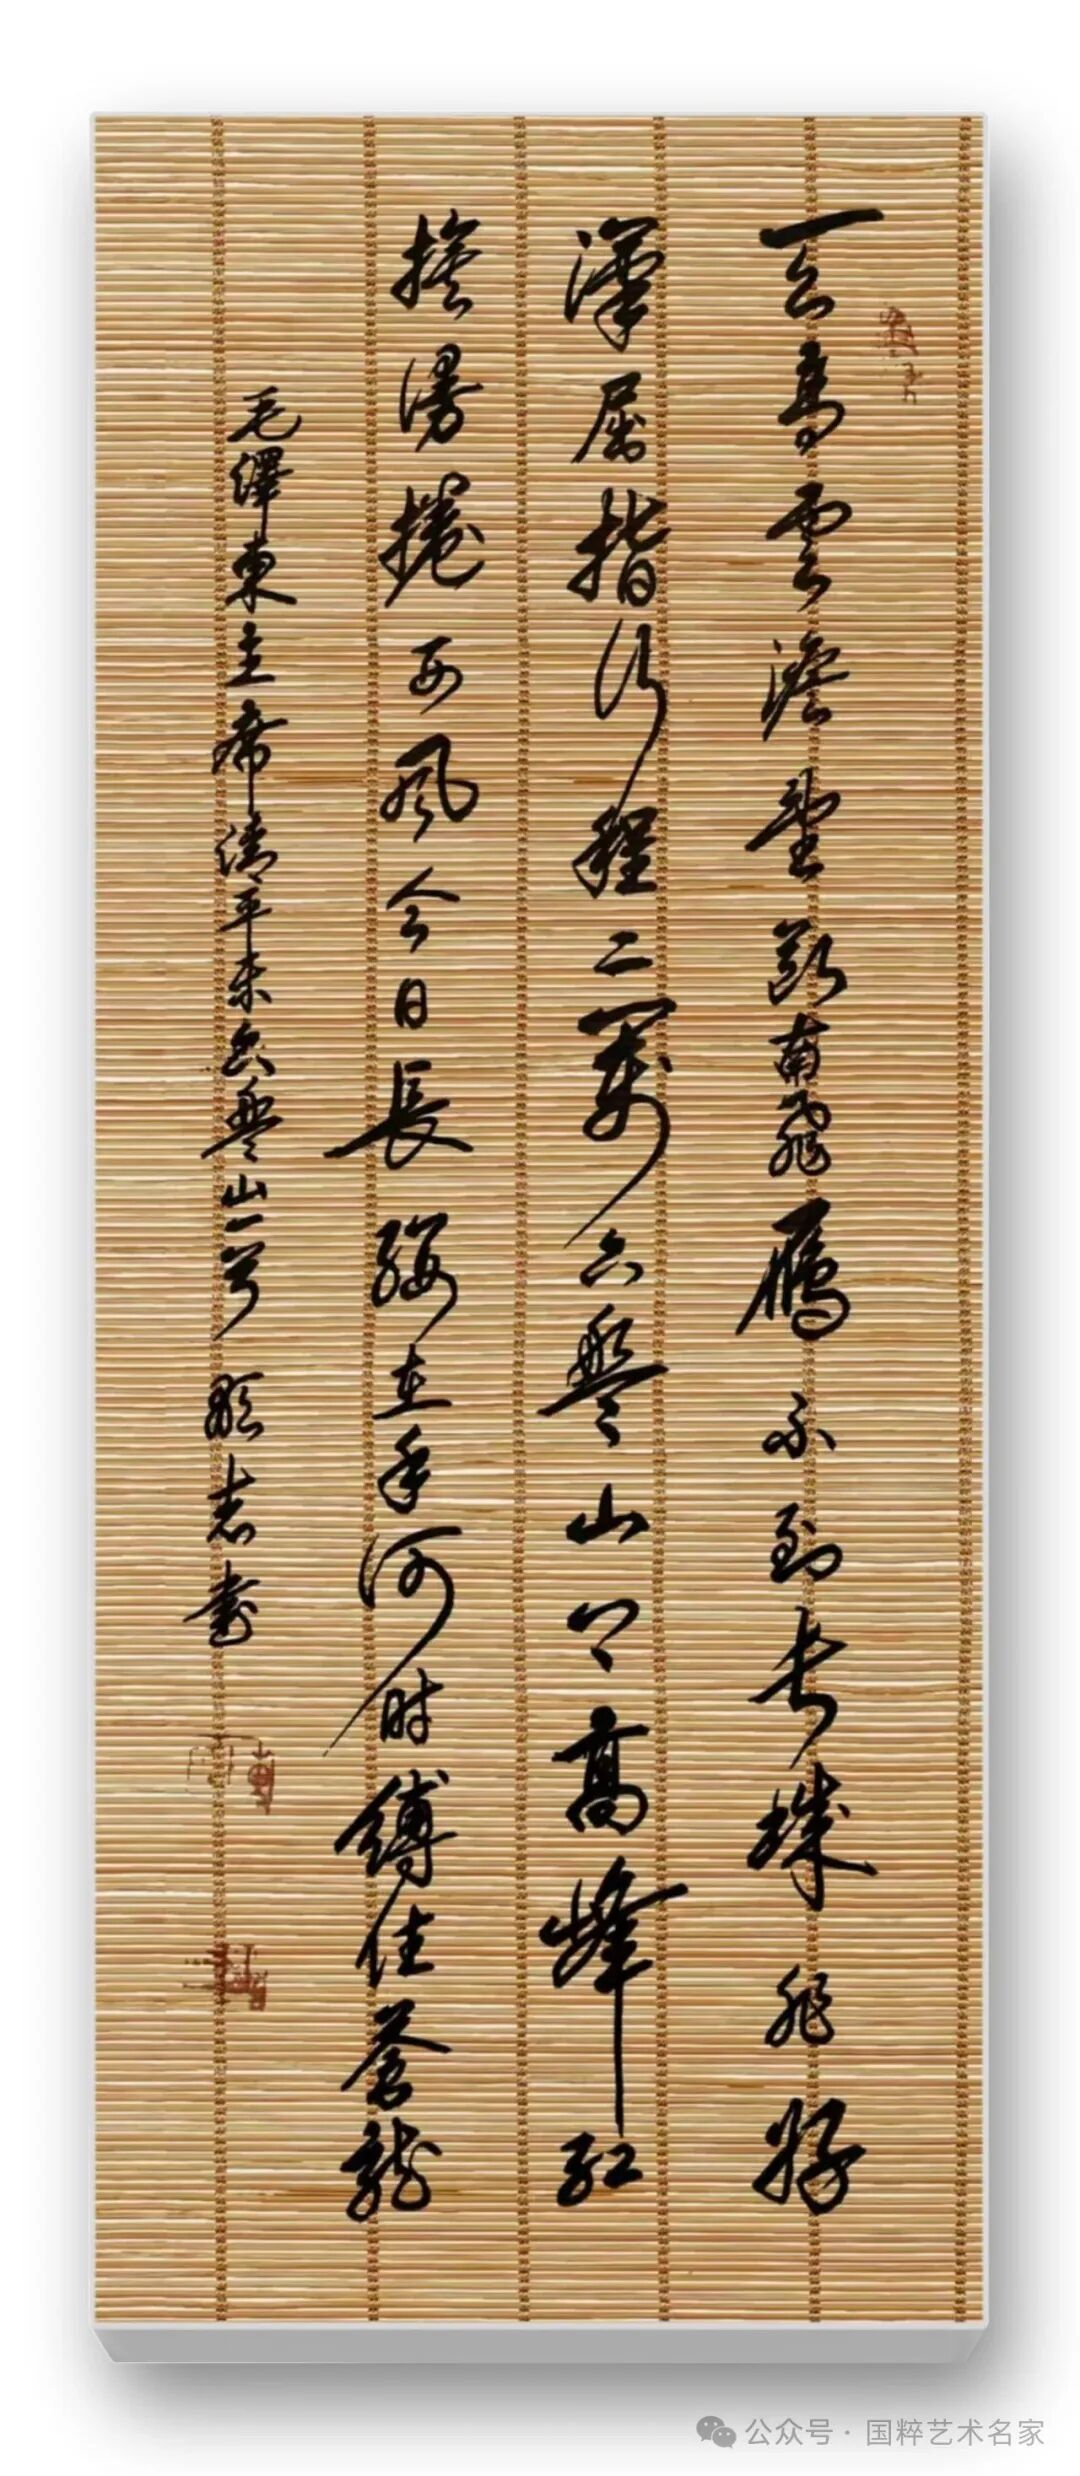 天高雲澹望断南飛雁不到長城非好
漢屈指行程二萬六盤山上高峰紅
旗漫捲西風今日長纓在手何时縛住蒼龍
毛澤東主席清平乐六盤山一首 志書
公众号 · 国粹艺术名家